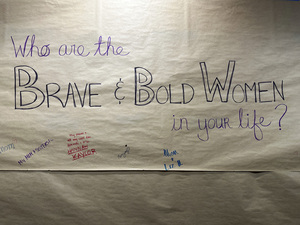 Who are the
BRAVE & BOLD WOMEN
in your life?